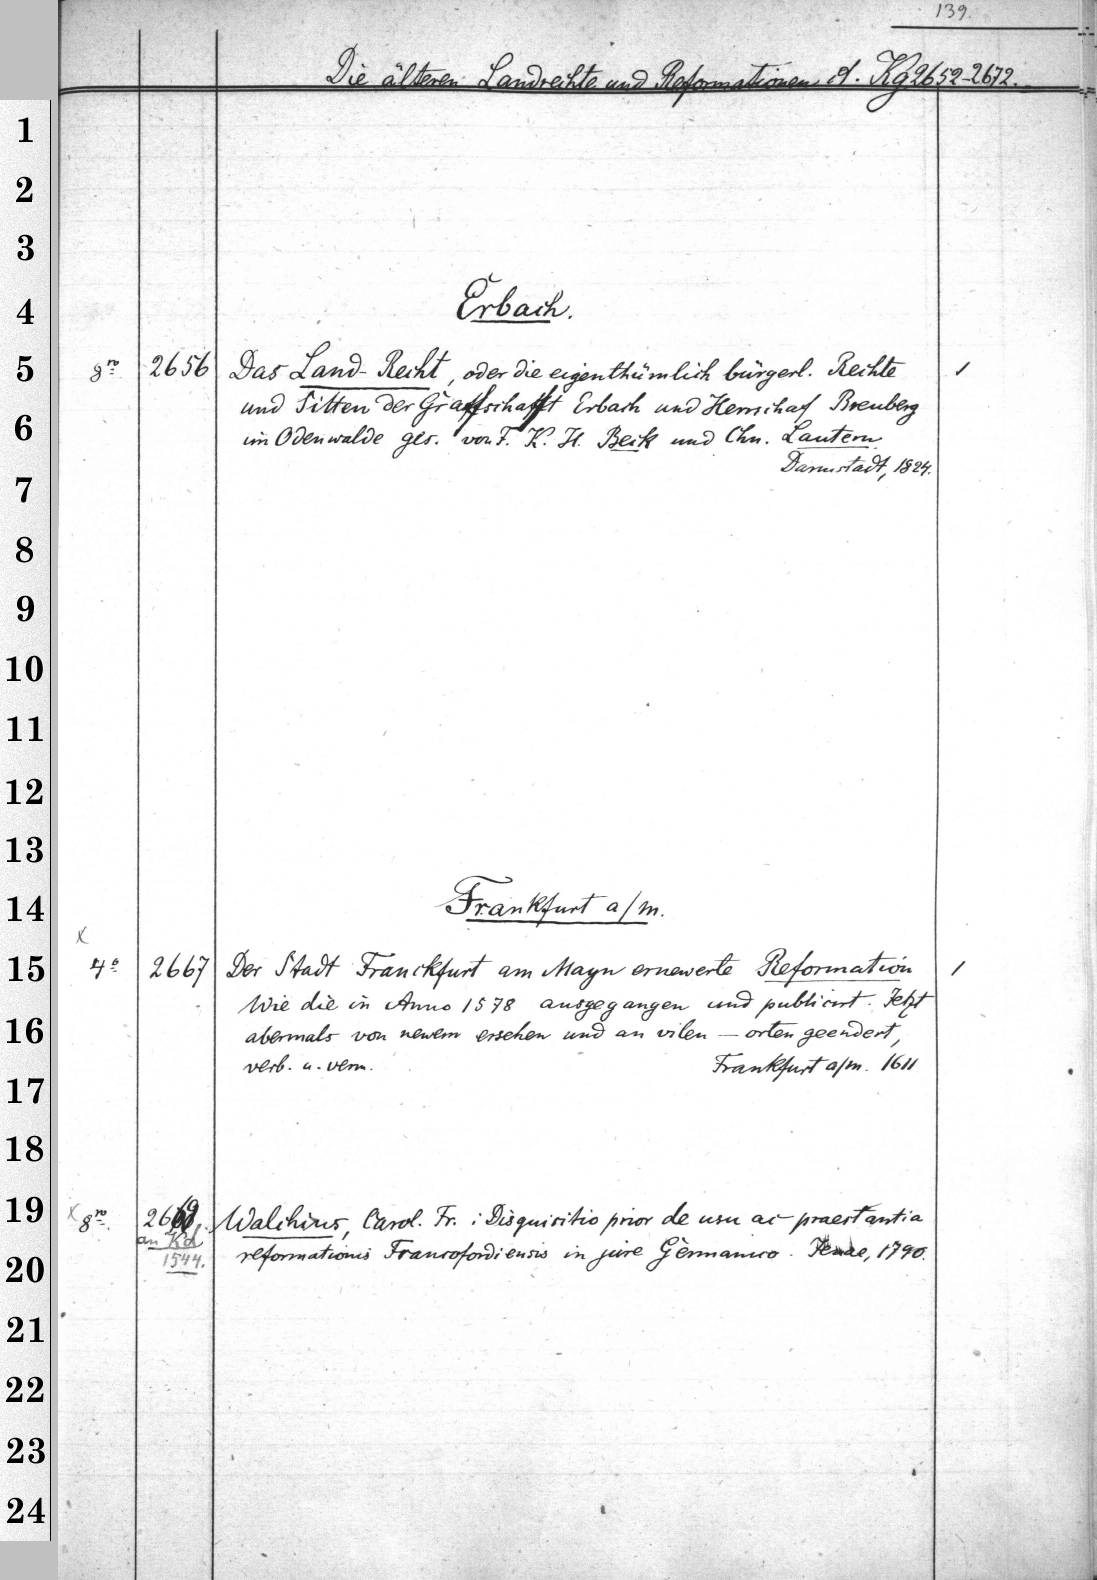 139.
Die älteren Landrechte und Reformationen. d. Kg 2652-2672.
1
2
3
4
Erbach.
5
8ro 2656 Das Land-Recht, oder die eigenthümlich bürgerl. Rechte 1
und Sitten der Graffschafft Erbach und Herrschaf Breuberg
6
im Odenwalde ges. von F. K. H. Beck und Chn. Lautern
Darmstadt, 1824.
7
8
9
10
11
12
13
14
Frankfurt a/m.
x
15
4o 2667 Der Stadt Franckfurt am Mayn ernewerte Reformation 1
Wie die in Anno 1578 ausgegangen und publicirt. Jetzt
16
abermals von newem ersehen und an vilen — orten geendert,
verb. u. verm. Frankfurt a/m. 1611
17
18
19
x 8ro. 2669. Walchius, Carol. Fr.: Disquisitio prior de usu ac praestantia
an Kd
1544.
reformationis Francofordiensis in jure Germanico. Jenae, 1790.
20
21
22
23
24